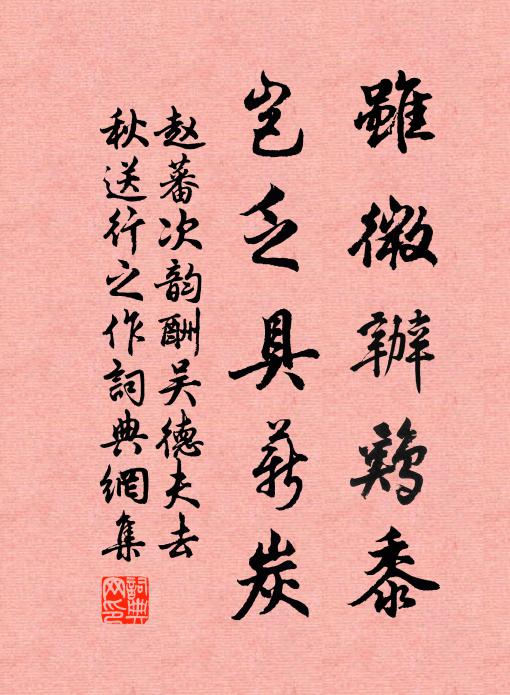 雖微辦鷄黍
豈乏具薪炭
赵蕃次韵酬吴德夫去
秋送行之作詞典網集
詞典
网印